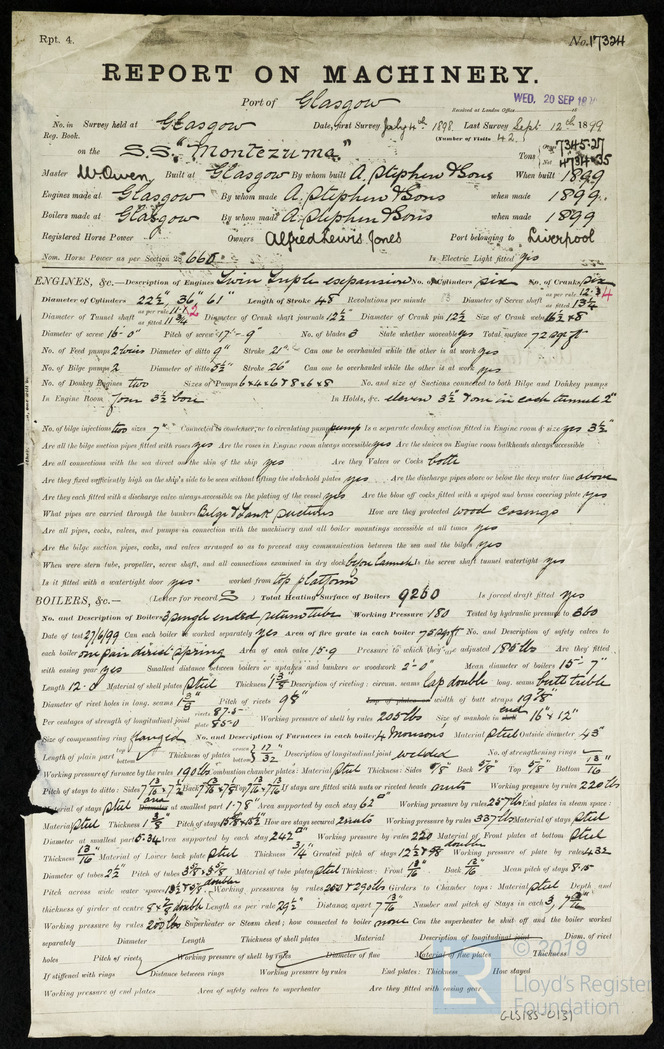 Rpt. 4.
No. 17324
REPORT ON MACHINERY.
Port of Glasgow
Received at London Office
WED. 20 SEP 18
No. in Survey held at Glasgow Date, first Survey July 4th 1898 Last Survey Sept 12th 1899
Reg. Book.
(Number of Visits 42)
on the S.S. "Montezuma" Tons
Master W. Owen Built at Glasgow By whom built A. Stephen & Sons When built 1899
Engines made at Glasgow By whom made A. Stephen & Sons when made 1899
Boilers made at Glasgow By whom made A. Stephen & Sons when made 1899
Registered Horse Power Owners Alfred Lewis Jones Port belonging to Liverpool
Nom. Horse Power as per Section 28 660 Is Electric Light fitted yes
ENGINES, &c.—Description of Engines Twin Triple expansion No. of Cylinders six No. of Cranks six
Diameter of Cylinders 22½, 36" 61" Length of Stroke 48 Revolutions per minute Diameter of Screw shaft as per rule as fitted 13¼
Diameter of Tunnel shaft as per rule as fitted 11¾ Diameter of Crank shaft journals 12½" Diameter of Crank pin 12½ Size of Crank webs 16½ x 8
Diameter of screw 16-0" Pitch of screw 17'-9" No. of blades 3 State whether moveable yes Total surface 72 sq ft
No. of Feed pumps Diameter of ditto 9" Stroke 21" Can one be overhauled while the other is at work yes
No. of Bilge pumps 2 Diameter of ditto 5½" Stroke 26" Can one be overhauled while the other is at work yes
No. of Donkey Engines two Sizes of Pumps 6x4x6 & 8x6x8 No. and size of Suctions connected to both Bilge and Donkey pumps
In Engine Room four 3½ bore In Holds, &c. eleven 3½" & one in each tunnel 2"
No. of bilge injections two sizes 7" Connected to condenser, or to circulating pump pump Is a separate donkey suction fitted in Engine room & size yes 3½"
Are all the bilge suction pipes fitted with roses yes Are the roses in Engine room always accessible yes Are the sluices on Engine room bulkheads always accessible
Are all connections with the sea direct on the skin of the ship yes Are they Valves or Cocks both
Are they fixed sufficiently high on the ship's side to be seen without lifting the stokehold plates yes Are the discharge pipes above or below the deep water line above
Are they each fitted with a discharge valve always accessible on the plating of the vessel yes Are the blow off cocks fitted with a spigot and brass covering plate yes
What pipes are carried through the bunkers Bilge & Tank suctions How are they protected wood casings
Are all pipes, cocks, valves, and pumps in connection with the machinery and all boiler mountings accessible at all times yes
Are the bilge suction pipes, cocks, and valves arranged so as to prevent any communication between the sea and the bilges yes
When were stern tube, propeller, screw shaft, and all connections examined in dry dock before launch Is the screw shaft tunnel watertight yes
Is it fitted with a watertight door yes worked from top platform
BOILERS, &c.— (Letter for record S) Total Heating Surface of Boilers 9260 Is forced draft fitted yes
No. and Description of Boilers 3 single ended return tube Working Pressure 180 Tested by hydraulic pressure to 360
Date of test 27/6/99 Can each boiler be worked separately yes Area of fire grate in each boiler 75 sq ft No. and Description of safety valves to
each boiler one pair direct spring Area of each valve 15.9 Pressure to which they are adjusted 185 lbs Are they fitted
with easing gear yes Smallest distance between boilers or uptakes and bunkers or woodwork 2'-0" Mean diameter of boilers 15'-7"
Length 12-0 Material of shell plates Steel Thickness 1⅜" Description of riveting: circum. seams lap double long. seams butt treble
Diameter of rivet holes in long. seams 1⅜" Pitch of rivets 9⅝" width of butt straps 19⅞"
Per centages of strength of longitudinal joint rivets 87.5 plate 85.0 Working pressure of shell by rules 205 lbs Size of manhole in end 16" x 12"
Size of compensating ring flanged No. and Description of Furnaces in each boiler 4 Morisons Material Steel Outside diameter 43"
Length of plain part top bottom Thickness of plates crown bottom 17/32" Description of longitudinal joint welded No. of strengthening rings
Working pressure of furnace by the rules 190 lbs Combustion chamber plates: Material Steel Thickness: Sides ⅝" Back ⅝" Top ⅝" Bottom 13/16"
Pitch of stays to ditto: Sides Back Top If stays are fitted with nuts or riveted heads nuts Working pressure by rules 220 lbs
Material of stays Steel area at smallest part 1.78" Area supported by each stay 62" Working pressure by rules 257 lbs End plates in steam space:
Material Steel Thickness 1⅜" Pitch of stays How are stays secured 2 nuts Working pressure by rules 337 lbs Material of stays Steel
Diameter at smallest part 5.34 Area supported by each stay 242 Working pressure by rules 220 Material of Front plates at bottom Steel
Thickness 13/16" Material of Lower back plate Steel Thickness ¾" Greatest pitch of stages Working pressure of plate by rules 432
Diameter of tubes 2½" Pitch of tubes Material of tube plates Steel Thickness: Front 13/16" Back Mean pitch of stays 8.15
Pitch across wide water spaces Working pressures by rules 255 & 290 lbs Girders to Chamber tops: Material Steel Depth and
thickness of girder at centre 8 x ⅞ double Length as per rule 29½" Distance apart Number and pitch of Stays in each 3,
Working pressure by rules 200 lbs Superheater or Steam chest; how connected to boiler none Can the superheater be shut off and the boiler worked
separately Diameter Length Thickness of shell plates Material Description of longitudinal joint Diam. of rivet
holes Pitch of rivets Working pressure of shell by rules Diameter of flue Material of flue plates Thickness
If stiffened with rings Distance between rings Working pressure by rules End plates: Thickness How stayed
Working pressure of end plates Area of safety valves to superheater Are they fitted with easing gear
© 2019
LR
Lloyd's Register
Foundation
GLS185-0131